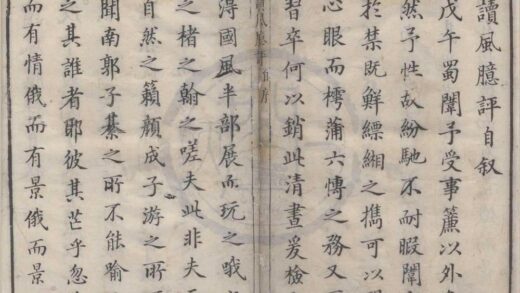 讀風臆評自叙
戊午蜀闈予受事簾以外
然予性故紛馳不耐暇闈
於棊既鮮縹緗之攜可以
心眼而樗蒲六愽之務又
習卒何以銷此清晝爰檢
淂國風半部展而玩之哦
之楮之翰之嗟夫此非夫
自然之籟顏成子游之所
聞南郭子綦之所不能喻
之其誰者耶彼其芒乎忽
而有情俄而有景俄而景